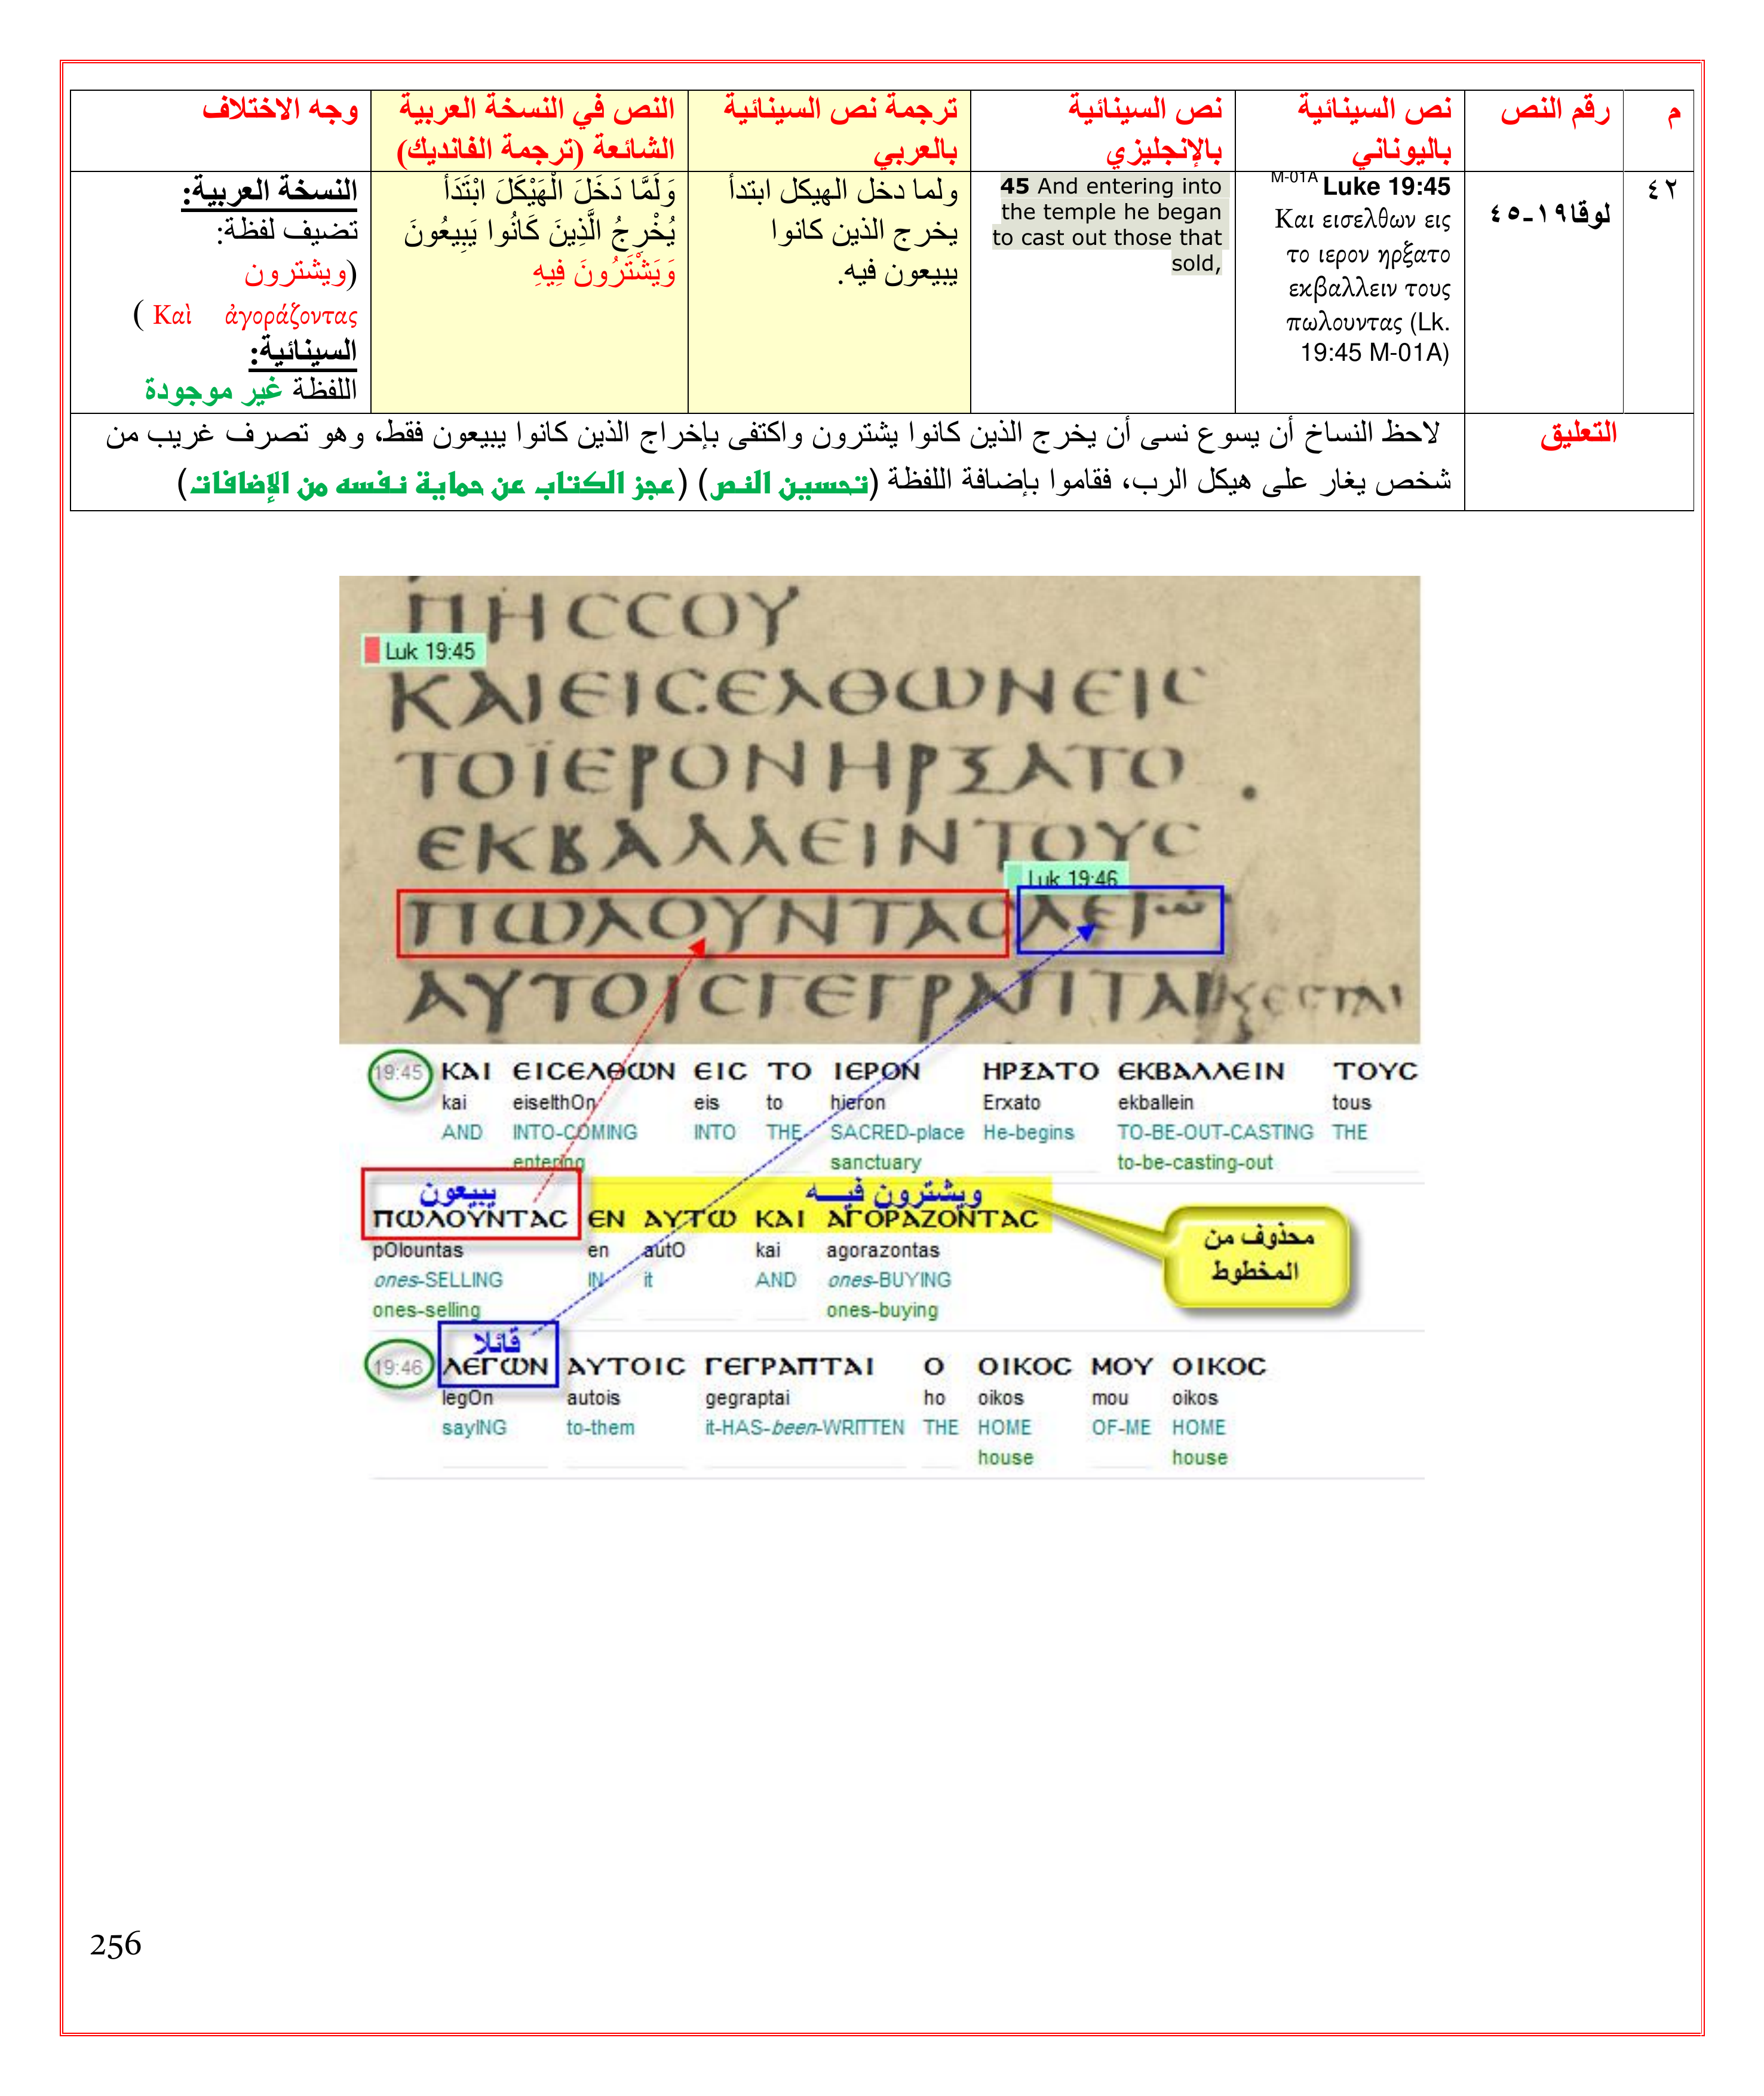 م
رقم النص
نص السينائية
باليوناني
نص السينائية
بالإنجليزي
ترجمة نص السينائية
بالعربي
النص في النسخة العربية
الشائعة (ترجمة الفانديك)
وجه الاختلاف
٤٢
لوقا١٩-٤٥
M-01A Luke 19:45
Και εισελθων εις
το ιερον ηρξατο
εκβαλλειν τους
πωλουντας (Lk.
19:45 M-01A)
45 And entering into
the temple he began
to cast out those that
sold,
ولما دخل الهيكل ابتدأ
يخرج الذين كانوا
يبيعون فيه.
وَلَمَّا دَخَلَ الْهَيْكَلَ ابْتَدَأَ
يُخْرِجُ الَّذِينَ كَانُوا يَبِيعُونَ
وَيَشْتَرُونَ فِيهِ
النسخة العربية:
تضيف لفظة:
(ويشترون
Καὶ ἀγοράζοντας )
السينائية:
اللفظة غير موجودة
التعليق
لاحظ النساخ أن يسوع نسى أن يخرج الذين كانوا يشترون واكتفى بإخراج الذين كانوا يبيعون فقط، وهو تصرف غريب من
شخص يغار على هيكل الرب، فقاموا بإضافة اللفظة (تحسين النص) (عجز الكتاب عن حماية نفسه من الإضافات)
ΠΗϹϹΟΥ
Luk 19:45
ΚΑΙΕΙϹΕΛΘΩΝΕΙϹ
ΤΟΪΕΡΟΝΗΡΞΑΤΟ
ΕΚΒΑΛΛΕΙΝΤΟΥϹ
Luk 19:46
ΠΩΛΟΥΝΤΑϹΛΕΓΩ
ΑΥΤΟΙϹΓΕΓΡΑΠΤΑΙ
19:45 ΚΑΙ ΕΙϹΕΛΘΩΝ ΕΙϹ ΤΟ ΙΕΡΟΝ ΗΡΞΑΤΟ ΕΚΒΑΛΛΕΙΝ ΤΟΥϹ
kai eiselthOn eis to hieron Erxato ekballein tous
AND INTO-COMING INTO THE SACRED-place He-begins TO-BE-OUT-CASTING THE
entering sanctuary to-be-casting-out
يبيعون ويشترون فيه
ΠΩΛΟΥΝΤΑϹ ΕΝ ΑΥΤΩ ΚΑΙ ΑΓΟΡΑΖΟΝΤΑϹ
pOlountas en autO kai agorazontas
ones-SELLING IN it AND ones-BUYING
ones-selling ones-buying
محذوف من
المخطوط
قائلا
19:46 ΛΕΓΩΝ ΑΥΤΟΙϹ ΓΕΓΡΑΠΤΑΙ Ο ΟΙΚΟϹ ΜΟΥ ΟΙΚΟϹ
legOn autois gegraptai ho oikos mou oikos
sayING to-them it-HAS-been-WRITTEN THE HOME OF-ME HOME
house house
256